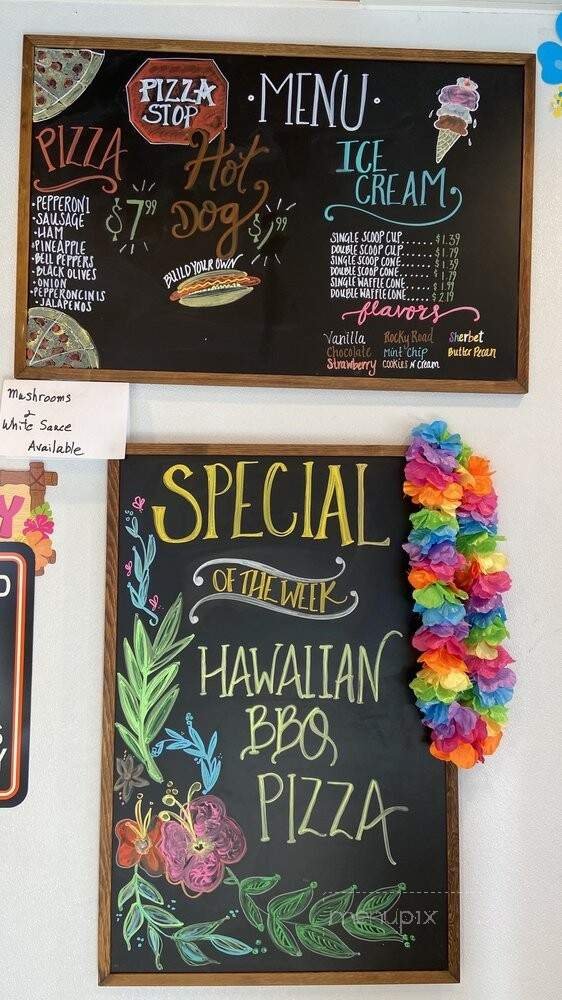 PIZZA
STOP
·MENU·
PIZZA
·PEPPERONI
·SAUSAGE
·HAM
·PINEAPPLE
·BELL PEPPERS
·BLACK OLIVES
·ONION
·PEPPERONCINIS
·JALAPENOS
$7.99
Hot
Dog
BUILD YOUR OWN
ICE
CREAM
SINGLE SCOOP CUP......$1.39
DOUBLE SCOOP CUP.....$1.79
SINGLE SCOOP CONE....$1.39
DOUBLE SCOOP CONE....$1.79
SINGLE WAFFLE CONE....$1.99
DOUBLE WAFFLE CONE....$2.19
flavors
Vanilla Rocky Road Sherbet
Chocolate Mint Chip Butter Pecan
Strawberry COOKIES N CREAM
Mushrooms
&
White Sauce
Available
SPECIAL
OF THE WEEK
HAWAIIAN
BBQ
PIZZA
Y
menupix